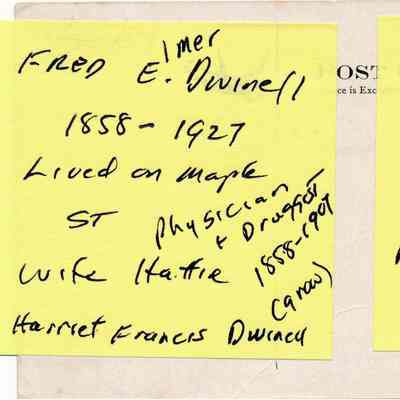 FRED E.lmer Dwinell
1858-1927
Lived on maple
ST
physician
+ Druggist
1858-1907
wife Hattie
(grow)
Harriet Francis Dwinell
POST
ce is Exc